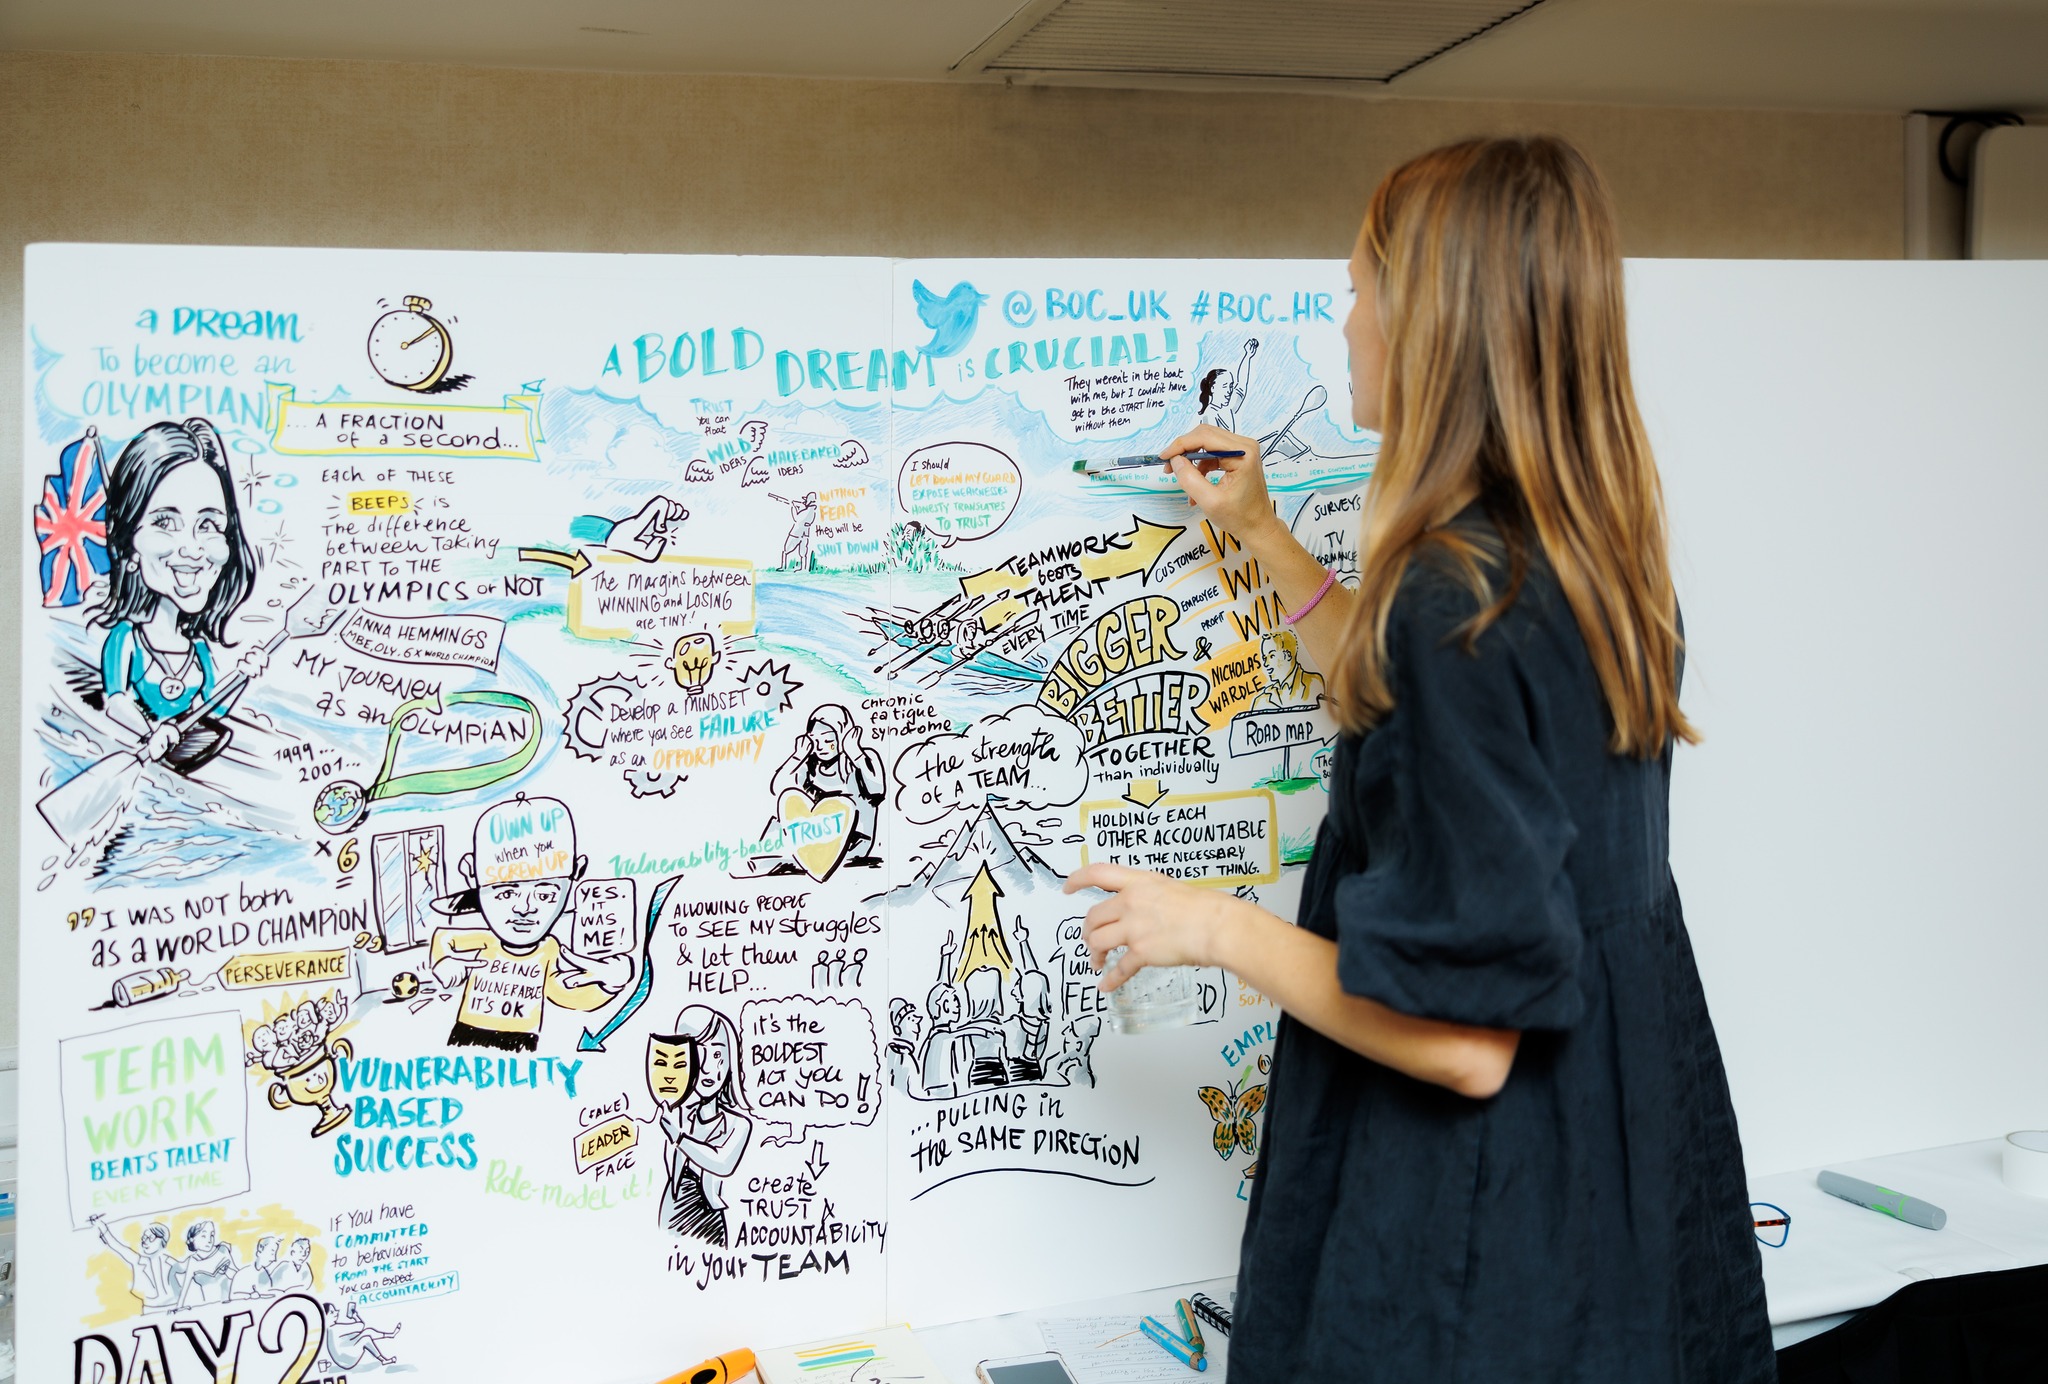 a DREam
To become an
OLYMPIAN
... A FRACTION
of a second...
Each OF THESE
BEEPS is
The difference
between Taking
PART TO THE
OLYMPICS or NOT
ANNA HEMMINGS
MBE, OLY. 6 x WORLD CHAMPION
MY JOURNEY
as an OLYMPIAN
1999...
2001...
x 6
=
"I WAS NOT born
as a WORLD CHAMPION"
PERSEVERANCE
TEAM
WORK
BEATS TALENT
EVERY TIME
IF YOU HAVE
COMMITTED
to behaviours
FROM THE START
You can expect
ACCOUNTABILITY
DAY 2
A BOLD DREAM is CRUCIAL!
TRUST
You can
float
WILD
IDEAS
HALF-BAKED
IDEAS
WITHOUT
FEAR
they will be
SHUT DOWN
The Margins between
WINNING and LOSING
are TINY!
Develop a MINDSET
where you see FAILURE
as an OPPORTUNITY
OWN UP
when you
SCREW UP
YES.
IT
WAS
ME!
BEING
VULNERABLE
IT'S OK
VULNERABILITY
BASED
SUCCESS
chronic
fatigue
syndrome
Vulnerability-based TRUST
ALLOWING PEOPLE
TO SEE MY struggles
& let them
HELP...
(FAKE)
LEADER
FACE
Role-model it!
It's the
BOLDEST
ACT YOU
CAN DO!
create
TRUST &
ACCOUNTABILITY
in your TEAM
@BOC_UK #BOC_HR
They weren't in the boat
with me, but I couldn't have
got to the START line
without them
I should
LET DOWN MY GUARD
EXPOSE WEAKNESSES
HONESTY TRANSLATES
TO TRUST
TEAMWORK
beats
TALENT
EVERY TIME
CUSTOMER
EMPLOYEE
PROFIT WIN
BIGGER &
BETTER
TOGETHER
than individually
NICHOLAS
WARDLE
SURVEYS
TV
ROAD MAP
HOLDING EACH
OTHER ACCOUNTABLE
IT IS THE NECESSARY
HARDEST THING.
the strength
of a TEAM...
...PULLING in
the SAME DIRECTION